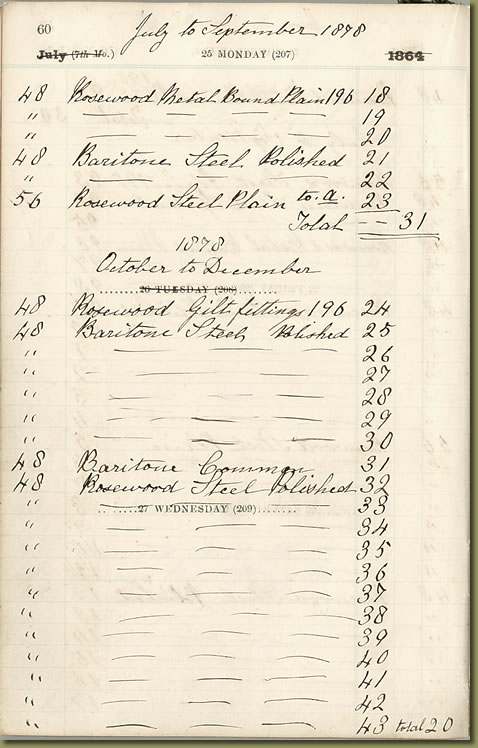 60 July to September 1878
July (7th Mo.) 25 MONDAY (207) 1864
48 Rosewood Metal Bound Plain 196 18
" — — — — 19
" — — — — 20
48 Baritone Steel Polished 21
" — — — 22
56 Rosewood Steel Plain to. a. 23
Total -- 31
1878
October to December
26 TUESDAY (208)
48 Rosewood Gilt fittings 196 24
48 Baritone Steel Polished 25
" — — — 26
" — — — 27
" — — — 28
" — — — 29
" — — — 30
48 Baritone Common 31
48 Rosewood Steel Polished 32
" — — — 33
27 WEDNESDAY (209)
" — — — 34
" — — — 35
" — — — 36
" — — — 37
" — — — 38
" — — — 39
" — — — 40
" — — — 41
" — — — 42
" — — — 43 total 20